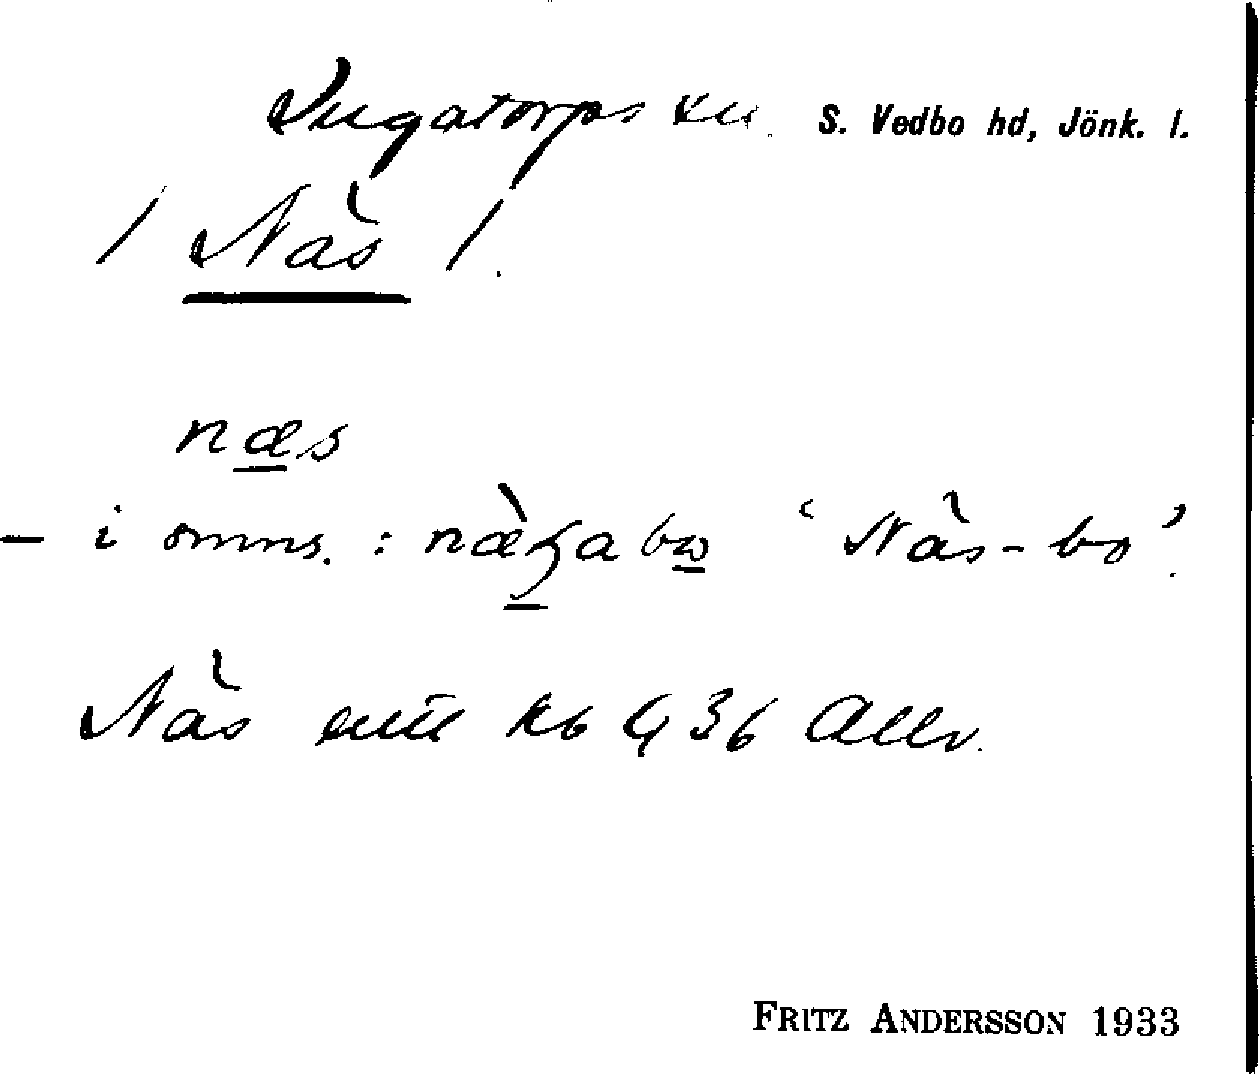 Ingatorps sn. S. Vedbo hd, Jönk. l.
/ Näs /.
næs
– i omns. : næ̀ʒabω ‘Näs-bo’.
Näs enl kb 1936 Allm.
FRITZ ANDERSSON 1933